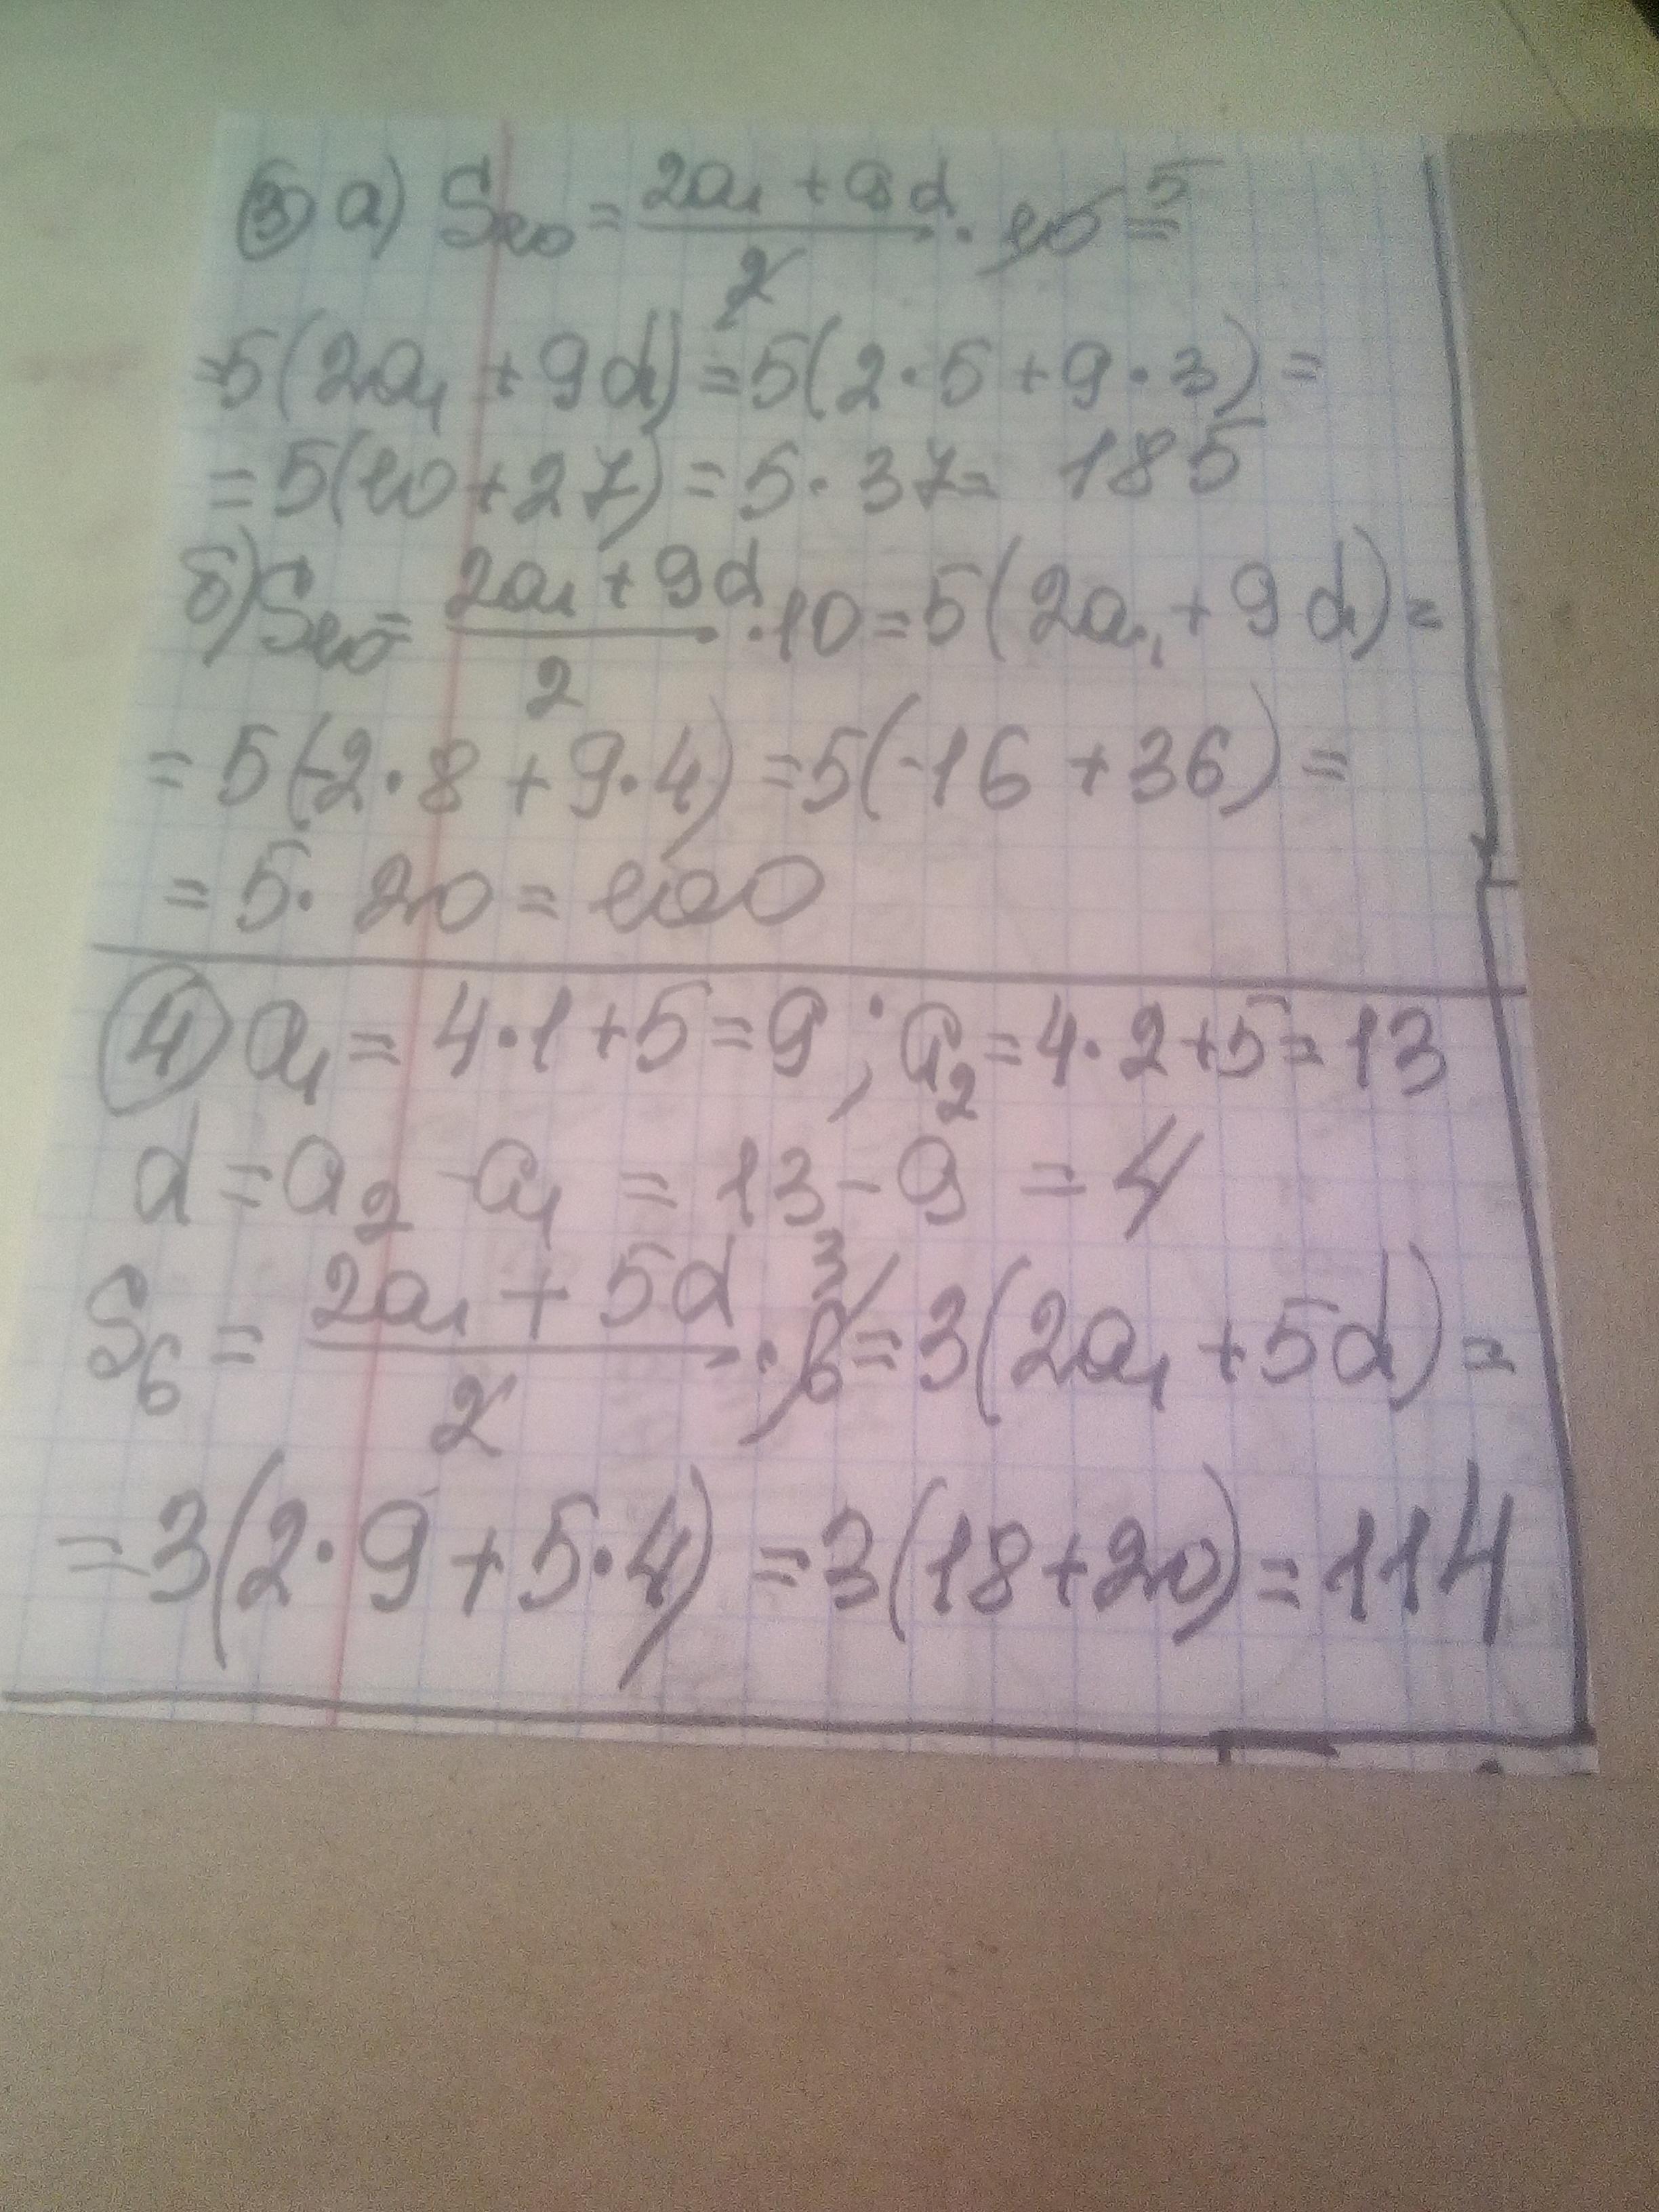 ③ а) S₁₀ = (2a₁ + 9d)/2 · 10 5 =
= 5(2a₁ + 9d) = 5(2·5 + 9·3) =
= 5(10 + 27) = 5·37 = 185
б) S₁₀ = (2a₁ + 9d)/2 · 10 = 5(2a₁ + 9d) =
= 5(-2·8 + 9·4) = 5(-16 + 36) =
= 5·20 = 100
④ a₁ = 4·1 + 5 = 9; a₂ = 4·2 + 5 = 13
d = a₂ - a₁ = 13 - 9 = 4
S₆ = (2a₁ + 5d)/2 · 6 3 = 3(2a₁ + 5d) =
= 3(2·9 + 5·4) = 3(18 + 20) = 114